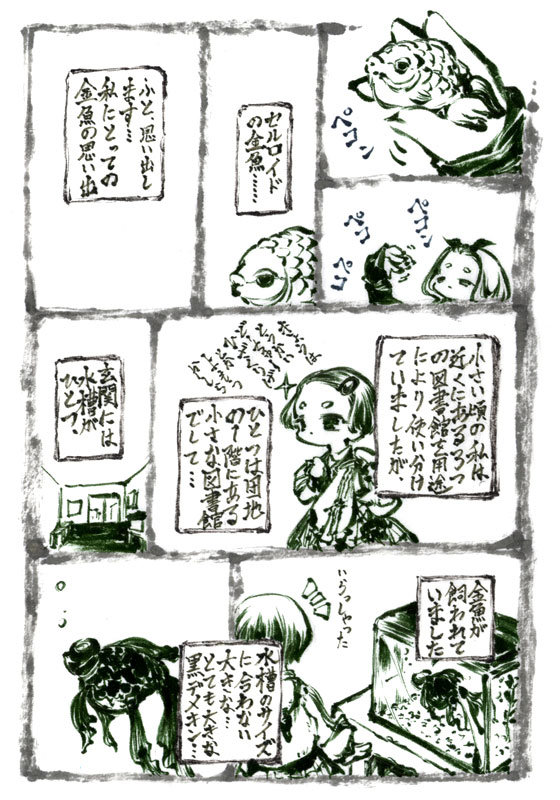 ペコン
♪
ペコン
ペコ
♪
ペコ
♪
セルロイド
の金魚……
ふと、思い出し
ます…
私にとっての
金魚の思い出
小さい頃の私は
近くにある3つ
の図書館を用途
により使い分け
ていましたが、
ひとつは団地
の1階にある
小さな図書館
でして…
玄関には
水槽が
ひとつ。
金魚が
飼われて
いました
いらっしゃった
水槽のサイズ
に合わない
大きな…
とても大きな
黒デメキン…